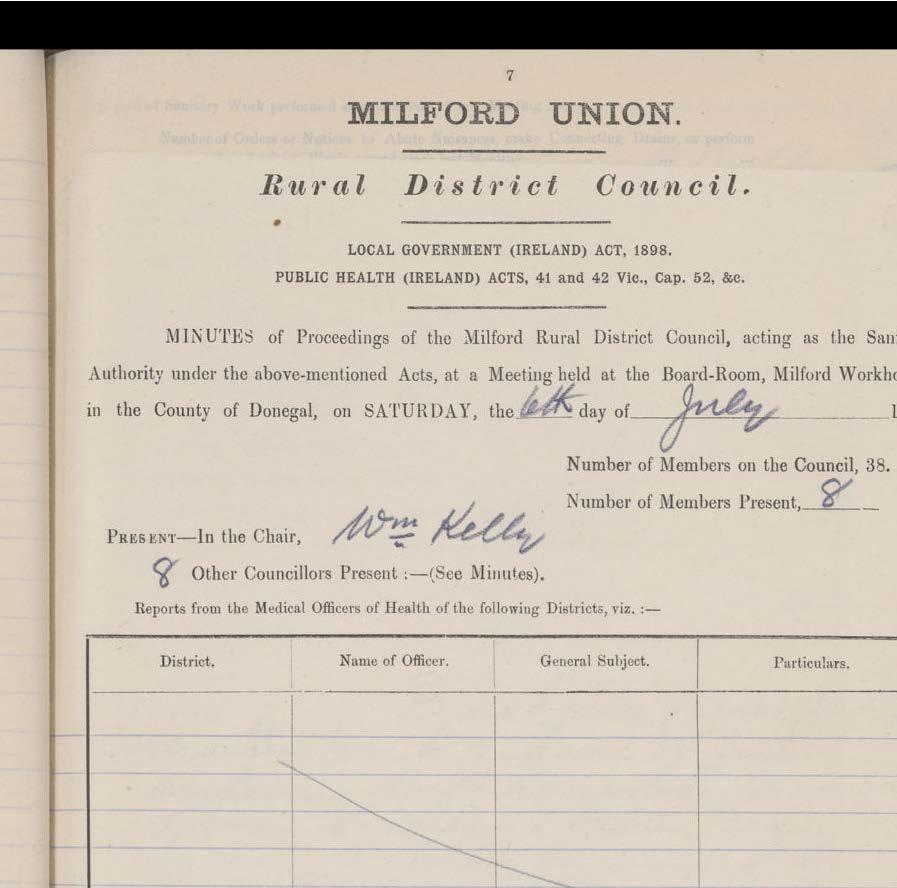 7
MILFORD UNION.
Number of Orders or Notices to Abate Nuisances, make Connecting Drains, or perform
Rural District Council.
LOCAL GOVERNMENT (IRELAND) ACT, 1898.
PUBLIC HEALTH (IRELAND) ACTS, 41 and 42 Vic., Cap. 52, &c.
MINUTES of Proceedings of the Milford Rural District Council, acting as the San
Authority under the above-mentioned Acts, at a Meeting held at the Board-Room, Milford Workho
in the County of Donegal, on SATURDAY, the 6th day of July 1
Number of Members on the Council, 38.
Number of Members Present, 8
PRESENT—In the Chair, Wm Kelly
8 Other Councillors Present :—(See Minutes).
Reports from the Medical Officers of Health of the following Districts, viz. :—
District. Name of Officer. General Subject. Particulars.